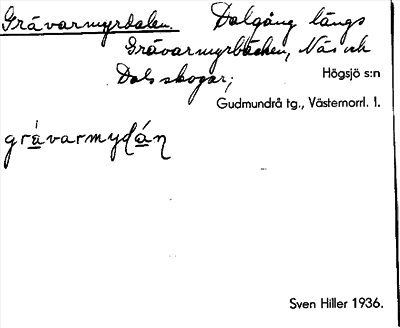 Grävarmyrdalen. Dalgång längs
Grävarmyrbäcken, Näs och
Dals skogar;
Högsjö s:n
Gudmundrå tg., Västernorrl. l.
gràvarmydán
Sven Hiller 1936.